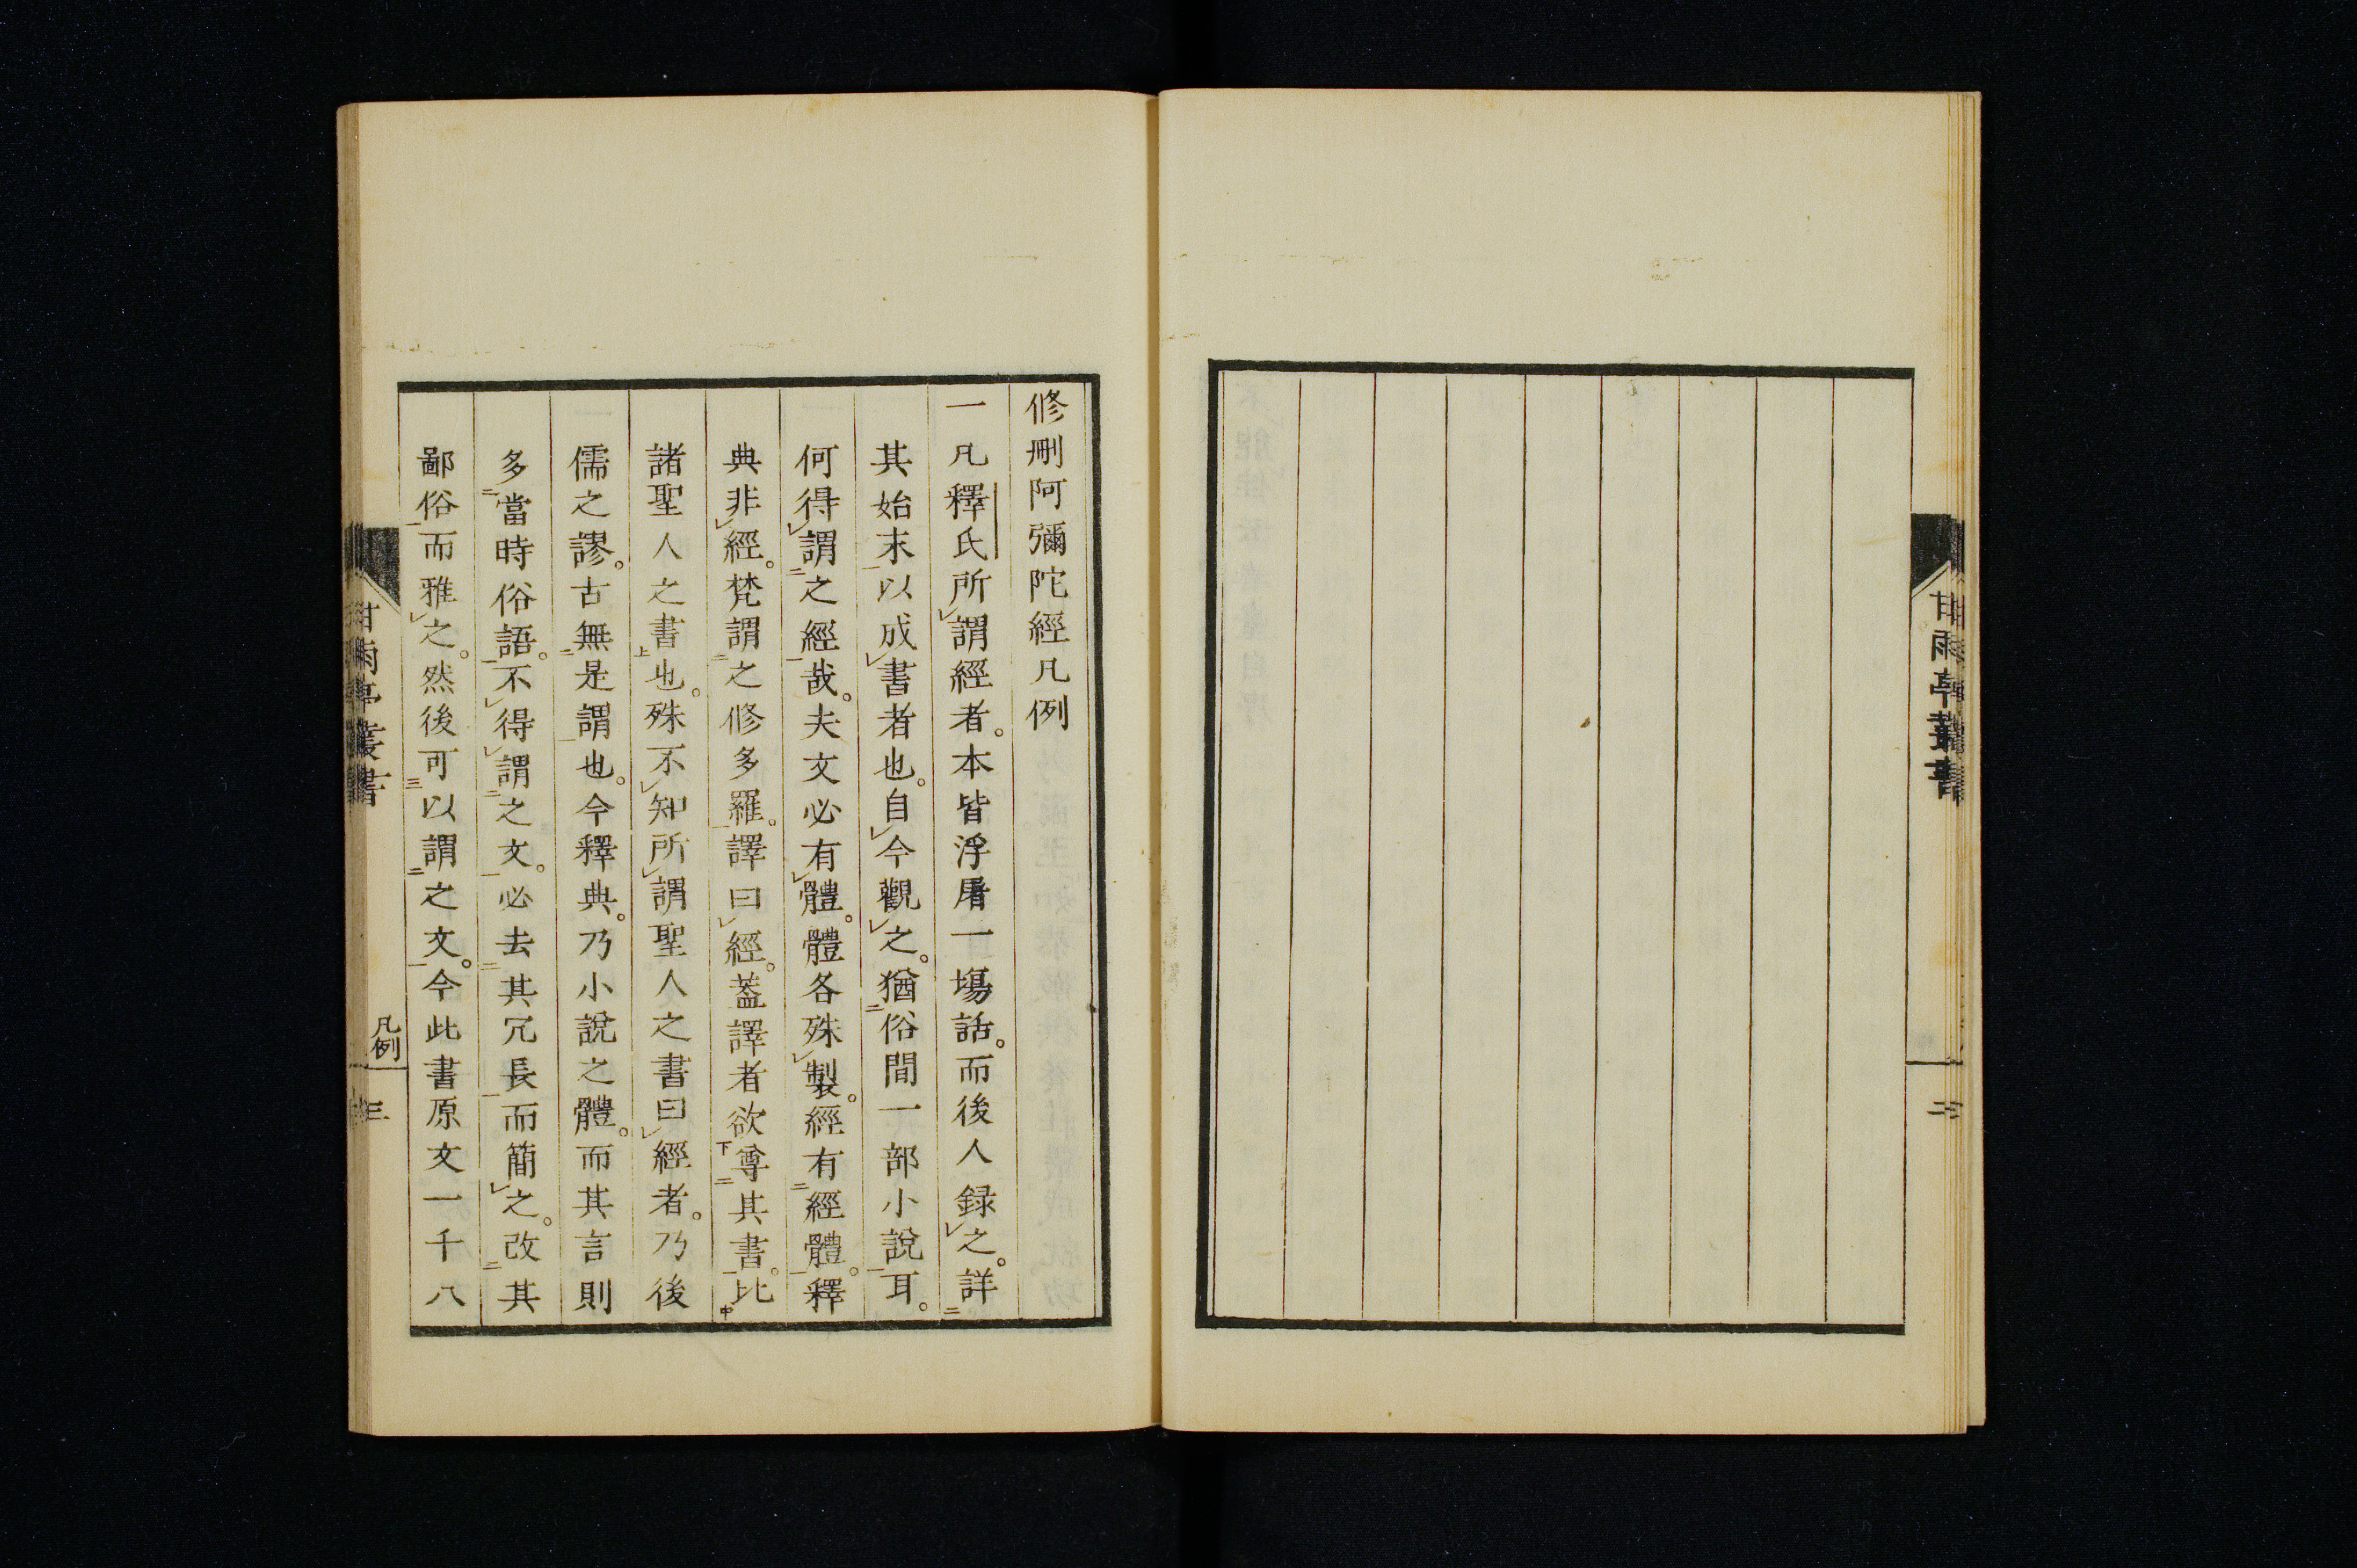 甘雨亭叢書
二
修刪阿彌陀經凡例
一凡釋氏所謂經者。本皆浮屠一場話。而後人録之。詳
其始末以成書者也。自今觀之。猶俗間一部小說耳。
何得謂之經哉。夫文必有體。體各殊製。經有經體。釋
典非經。梵謂之修多羅。譯曰經。蓋譯者欲尊其書。比
諸聖人之書也。殊不知所謂聖人之書曰經者。乃後
儒之謬。古無是謂也。今釋典。乃小說之體。而其言則
多當時俗語。不得謂之文。必去其冗長而簡之。改其
鄙俗而雅之。然後可以謂之文。今此書原文一千八
甘雨亭叢書
凡例
三